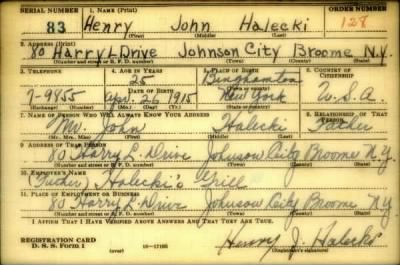 SERIAL NUMBER 1. NAME (Print) ORDER NUMBER
83 Henry John Halecki 128
(First) (Middle) (Last)
2. ADDRESS (Print)
80 Harry L Drive Johnson City Broome N.Y.
(Number and street or R. F. D. number) (Town) (County) (State)
3. TELEPHONE 4. AGE IN YEARS 5. PLACE OF BIRTH 6. COUNTRY OF CITIZENSHIP
25 Binghamton
DATE OF BIRTH (Town or county)
7-9855 Apr. 26, 1915 New York U.S.A.
(Exchange) (Number) (Mo.) (Day) (Yr.) (State or country)
7. NAME OF PERSON WHO WILL ALWAYS KNOW YOUR ADDRESS 8. RELATIONSHIP OF THAT PERSON
Mr. John Halecki Father
(Mr., Mrs., Miss) (First) (Middle) (Last)
9. ADDRESS OF THAT PERSON
80 Harry L. Drive Johnson City Broome N.Y.
(Number and street or R. F. D. number) (Town) (County) (State)
10. EMPLOYER'S NAME
(Father) Halecki's Grill
11. PLACE OF EMPLOYMENT OR BUSINESS
80 Harry L. Drive Johnson City Broome N.Y.
(Number and street or R. F. D. number) (Town) (County) (State)
I AFFIRM THAT I HAVE VERIFIED ABOVE ANSWERS AND THAT THEY ARE TRUE.
REGISTRATION CARD
D. S. S. Form 1 (over) 16-17105 Henry J. Halecki
(Registrant's signature)